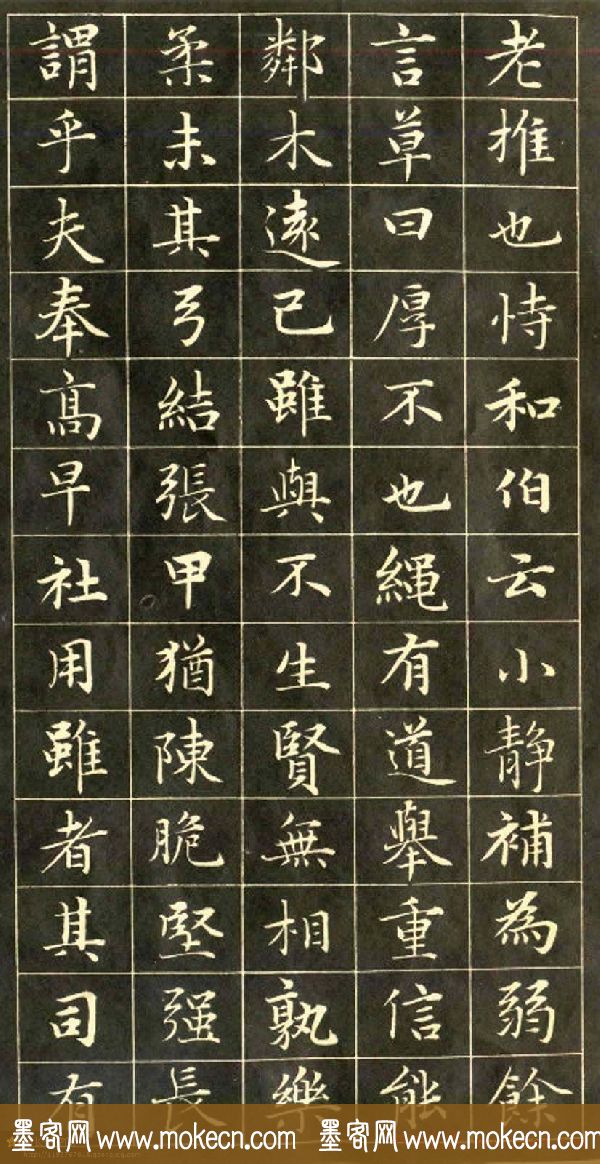 老推也恃和伯云小静補為弱餘
言草曰厚不也繩有道舉重信能
鄰木遠己雖與不生賢無相孰樂
柔未其弓結張甲猶陳脆堅强長
謂乎夫奉髙早社用雖者其司有
墨客网 www.mokecn.com 墨客网 www.mokecn.com